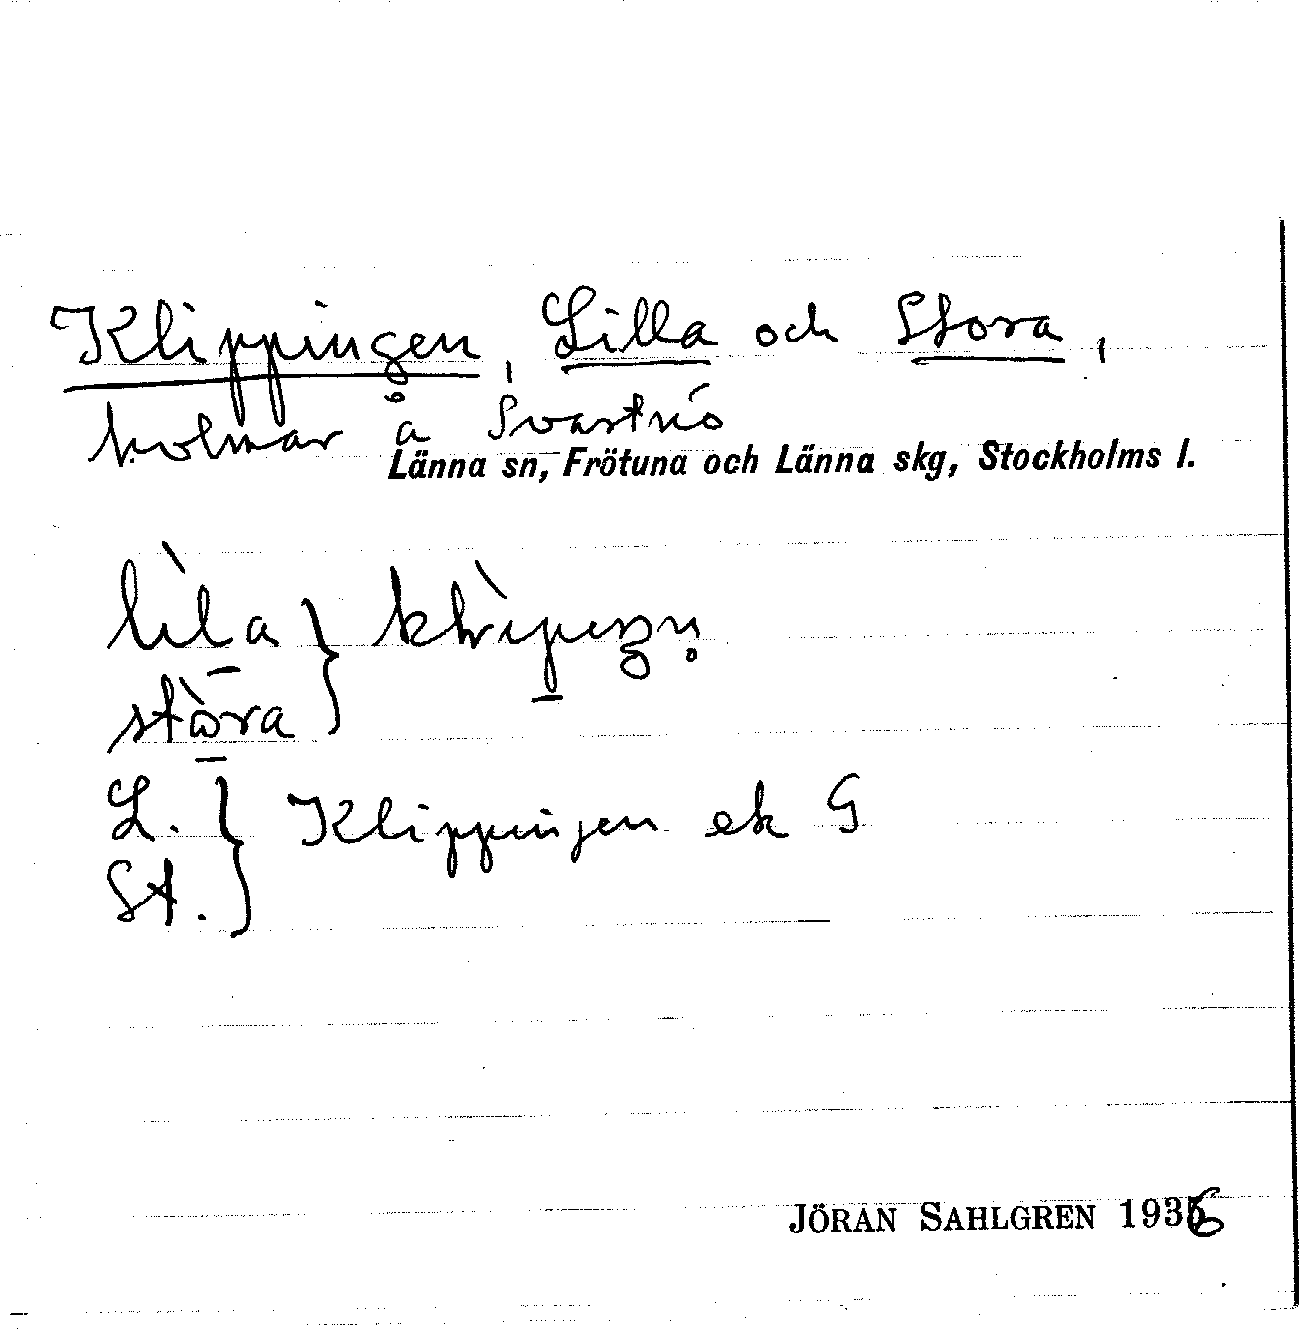 Klippingen, Lilla och Stora,
holmar å Svartnö
Länna sn, Frötuna och Länna skg, Stockholms l.
lìla
stòra
L. } Klippingen ek G
St.
JÖRAN SAHLGREN 1936